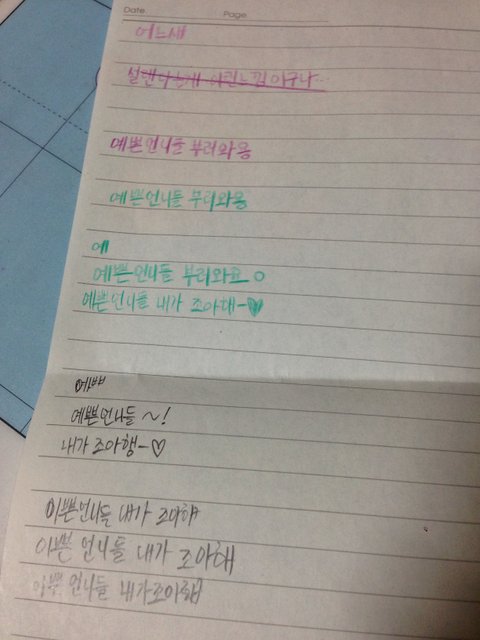 Date Page
어느새
설렌다는게 이런느낌이구나...
예쁜언니들 부러와용
예쁜언니들 부러와용
예
예쁜언니들 부러와요
예쁜언니들 내가 조아해~♥
예쁘
예쁜언니들 ~!
내가 조아행~♡
이쁜언니들 내가 조아해
이쁜 언니들 내가 조아해
이쁘 언니들 내가조아해